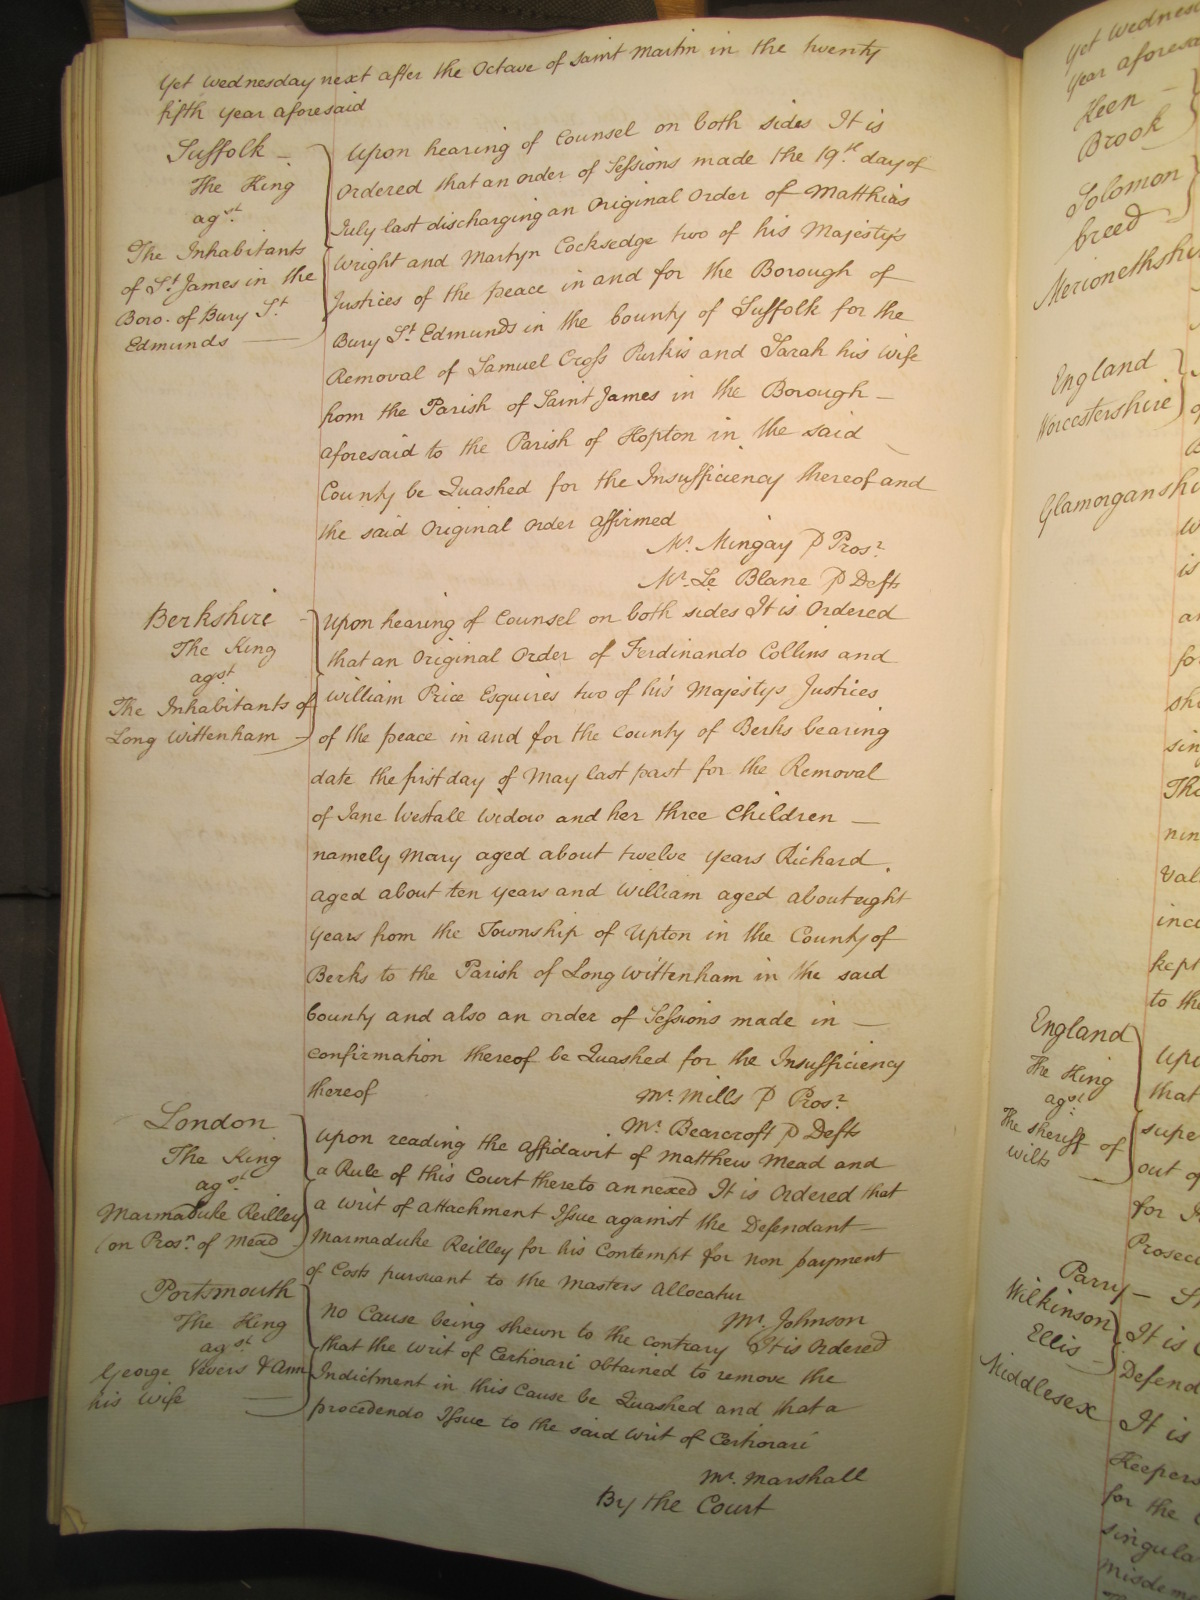 Yet Wednesday next after the Octave of Saint Martin in the twenty
fifth year aforesaid
Suffolk –
The King
agst.
The Inhabitants
of St. James in the
Boro. of Bury St.
Edmunds —
Upon hearing of Counsel on both sides It is
Ordered that an order of Sessions made the 19th. day of
July last discharging an Original Order of Matthias
Wright and Martyn Cocksedge two of his Majesty's
Justices of the peace in and for the Borough of
Bury St. Edmunds in the County of Suffolk for the
Removal of Samuel Cross Purkis and Sarah his Wife
from the Parish of Saint James in the Borough –
aforesaid to the Parish of Hopton in the said
County be Quashed for the Insufficiency thereof and
the said Original Order affirmed
Mr. Mingay P Prosr.
Mr. Le Blanc P Defts
Berkshire –
The King
agst
The Inhabitants of
Long Wittenham –
Upon hearing of Counsel on both sides It is Ordered
that an Original Order of Ferdinando Collins and
William Price Esquires two of his Majestys Justices
of the peace in and for the County of Berks bearing
date the first day of May last past for the Removal
of Jane Westall Widow and her three Children –
namely Mary aged about twelve years Richard
aged about ten years and William aged about eight
years from the Township of Upton in the County of
Berks to the Parish of Long Wittenham in the said
County and also an order of Sessions made in –
confirmation thereof be Quashed for the Insufficiency
thereof
Mr. Mills P Prosr.
Mr. Bearcroft P Defts
London
The King
agst.
Marmaduke Reilley
(on Prosn. of Mead)
Upon reading the Affidavit of Matthew Mead and
a Rule of this Court thereto annexed It is Ordered that
a Writ of Attachment Issue against the Defendant –
Marmaduke Reilley for his Contempt for non payment
of Costs pursuant to the Masters Allocatur
Mr. Johnson
Portsmouth
The King
agst
George Vevers & Ann
his Wife —
No Cause being shewn to the contrary It is Ordered
that the Writ of Certiorari obtained to remove the
Indictment in this Cause be Quashed and that a
procedendo Issue to the said Writ of Certiorari
Mr. Marshall
By the Court
Yet Wednes
Year aforesa
Keen –
Brook
Solomon
breed –
Merionethshi
England
Worcestershire
Glamorganshi
is
for
sin
nin
kept
to the
England
The King
agst.
The Sheriff of
Wilts
Upo
that
supe
out of
for
Prosec
Parry –
Wilkinson
Ellis –
It is
Defend
Middlesex
It is
Keepers
for the
singula
misdeme